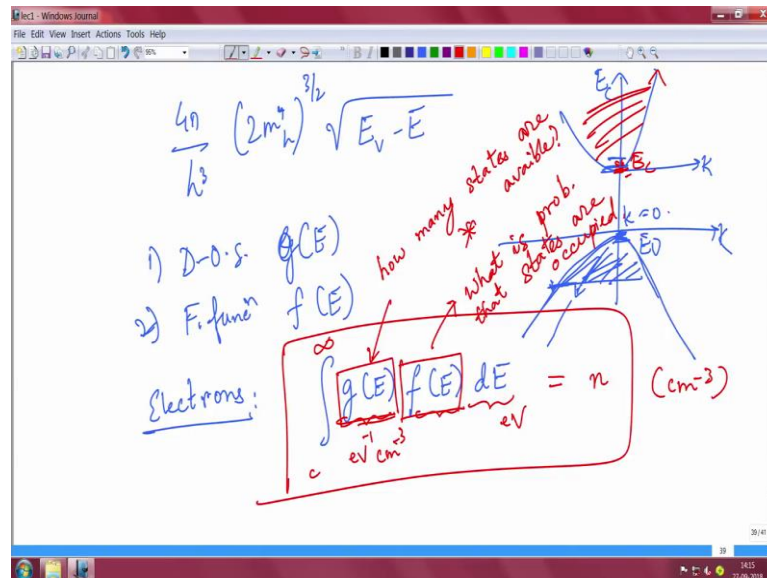 lec1 - Windows Journal
File Edit View Insert Actions Tools Help
95%
4π/h³ (2m*h)^3/2 √Ev-E
E
Ec
K
k=0.
K
how many states are
avaible?
*
What is prob.
that states are
occupied.
1) D-O.S. g(E)
2) F. funcⁿ f(E)
Electrons: ∫ g(E) f(E) dE = n (cm⁻³)
∞
c
eV⁻¹ cm⁻³
eV
39/41
39
14:15
27-09-2018